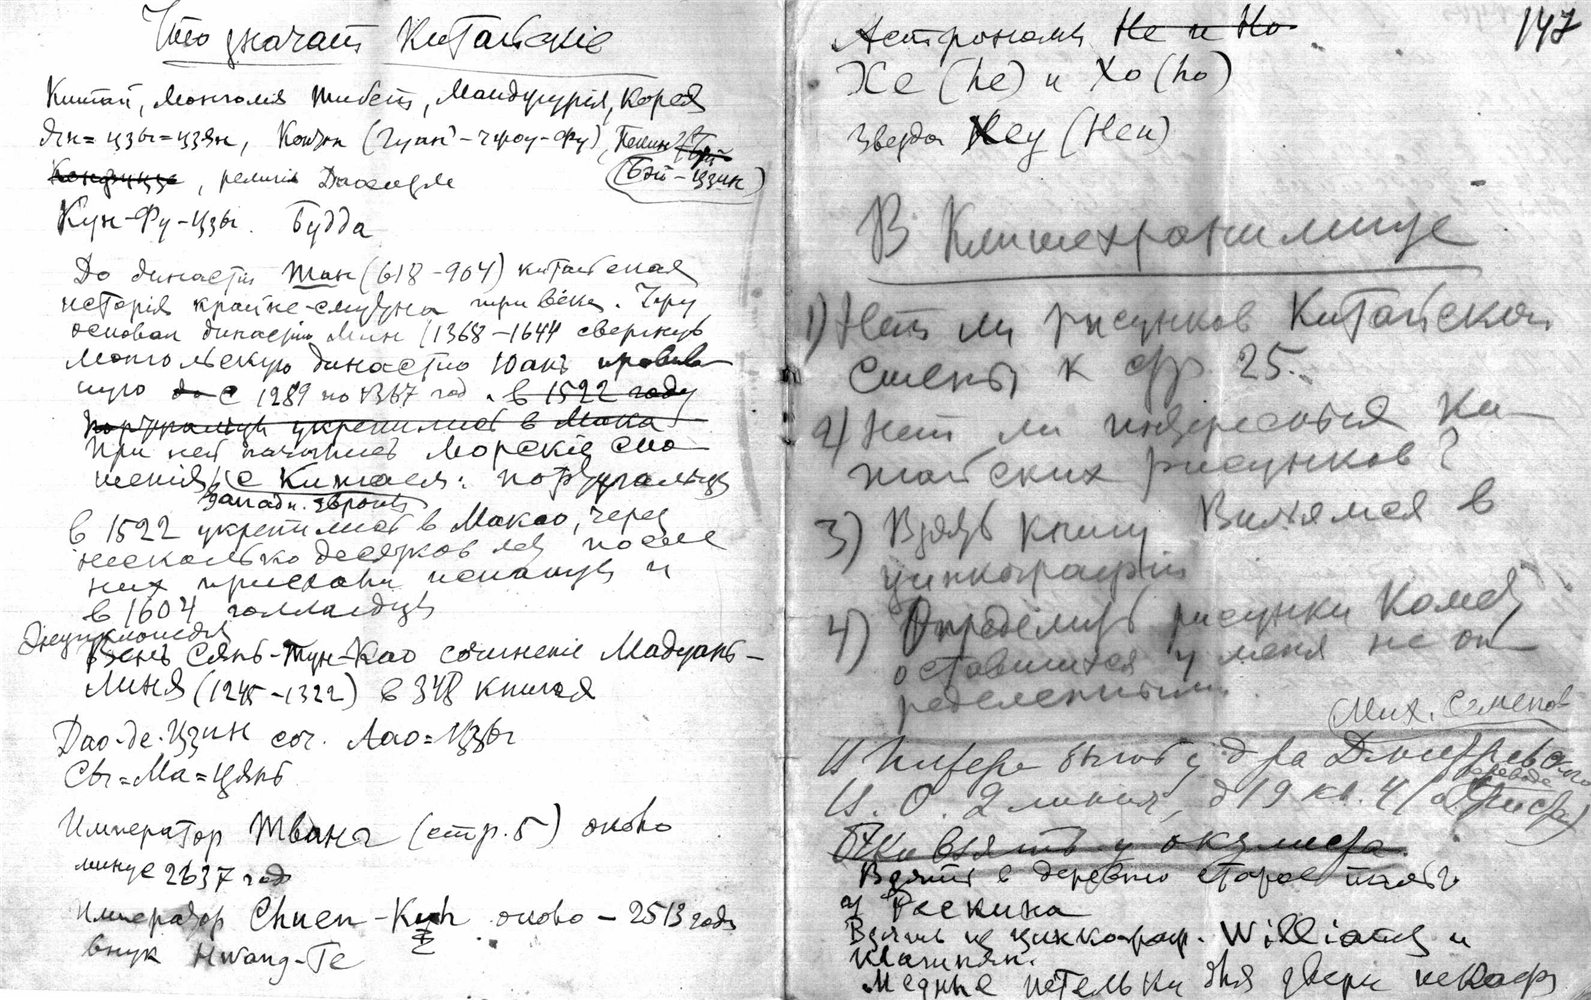 Что значат Китайскіе
Китай, Монголія Тибет, Манджурія, Корея
Ян=цзы=цзян, Кантон (Гуан-чжоу-Фу), Пекин
(Бэй-цзин)
, религія Даосизм
Кун-Фу-цзы. Будда
До династіи Тан (618-907) китайская
исторія крайне смутна при вѣка. Чжу
основал династію Мин (1368-1644 свергнув
монгольскую династію Юань правив-
шую до с 1289 по 1367 год. в 1522 году
португальцы укрепились в Макао
При ней начались морскіе сно-
шенія с Китаем: португальцы
западн. Европы
в 1522 укрепились в Макао, через
несколько десятков лет после
них пріехали испанцы и
в 1604 голландцы
Энциклопедія
Вень Сянь-Тун-Као сочиненіе Мадуань-
линя (1245-1322) в 348 книгах
Дао-де-Цзин соч. Лао=Цзы
Сы=Ма=Цянь
Император Тванг (стр. 5) около
минус 2637 год
Император Chuen-Kuh около - 2513 год
внук Hwang-Te
147
Астрономы Не и Но
Хе (he) и Хо (ho)
звезда Неу (Heu)
В Клишехранилище
1) Нет ли рисунков Китайской
смены к стр 25.
2) Нет ли интересных Ки-
тайских рисунков?
3) Взять книгу Вилямса в
цинкографіи
4) Определить рисунки комет
оставшихся у меня не оп-
ределенными.
Мих. Семенов
И Питере быть у д-ра Дмитревского
И. О. 2 линия, д 19 кв. 4 (
Очки взять у окулиста.
Взять в деревню старое пальто
у Раскина
Взять из цинкограф. Williams и
Медные петельки для двери шкафа